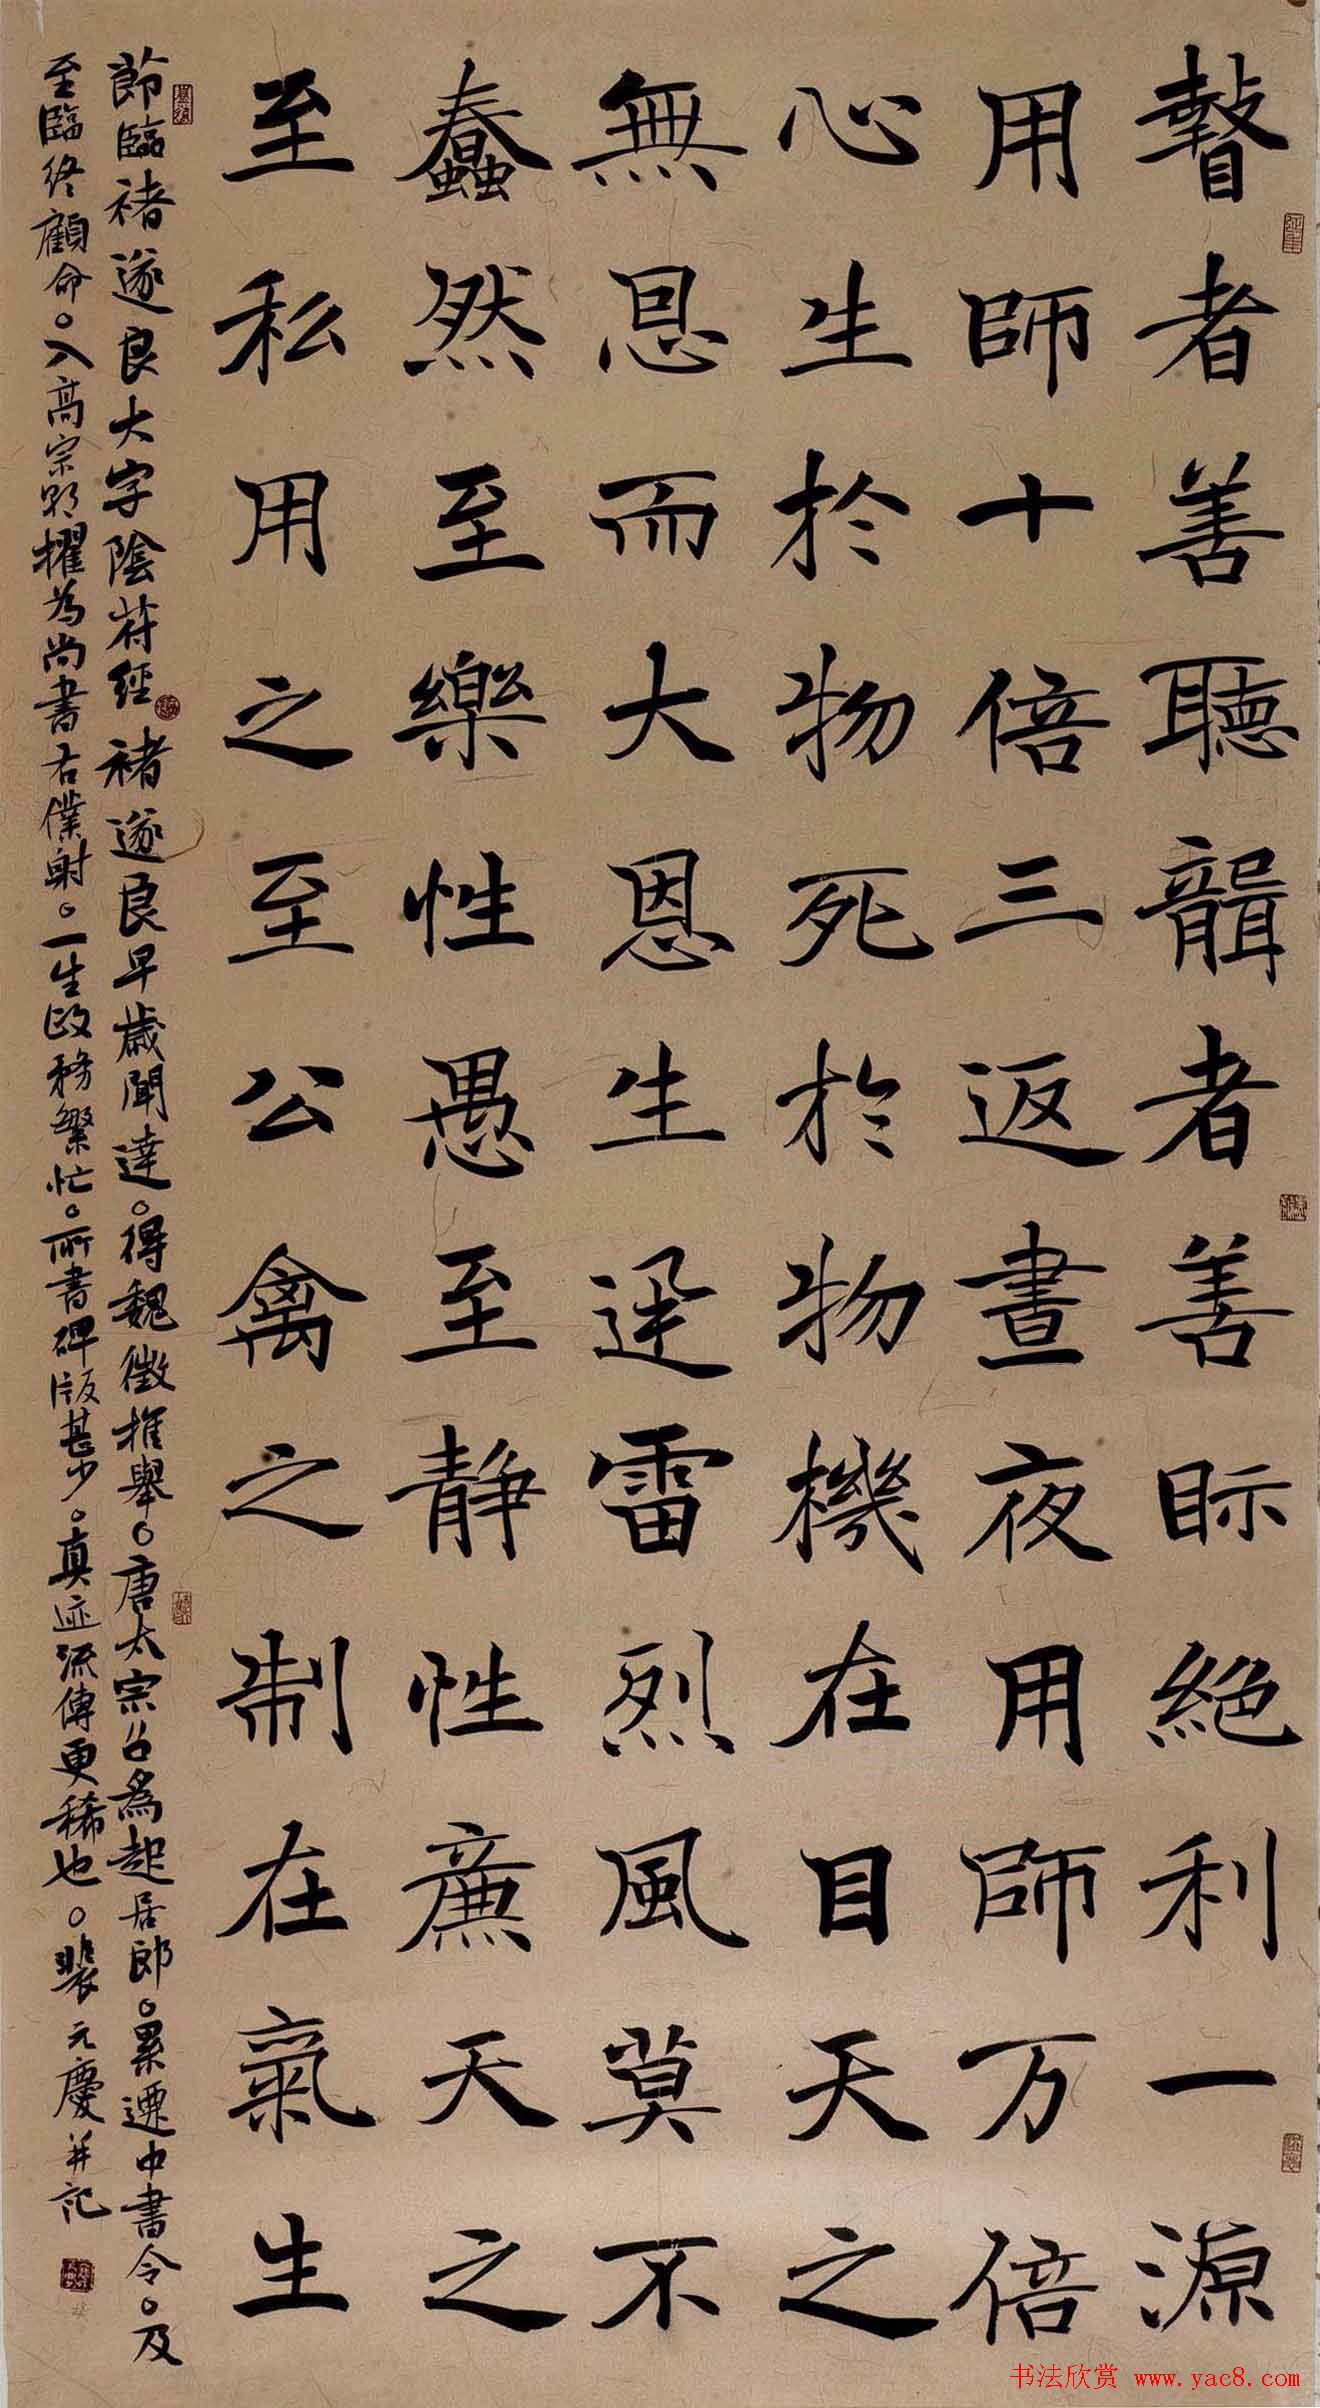 瞽者善聽聾者善眎絕利一源
用師十倍三返晝夜用師万倍
心生於物死於物機在目天之
無恩而大恩生迅雷烈風莫不
蠢然至樂性愚至靜性廉天之
至私用之至公禽之制在氣生
節臨褚遂良大字陰符經褚遂良早歲聞達。得魏徵推舉。唐太宗召為起居郎。累遷中書令。及
至臨終顧命。入高宗朝擢為尚書右僕射。一生政務繁忙。所書碑版甚少。真迹流傳更稀也。裴元慶并記
书法欣赏 www.yac8.com